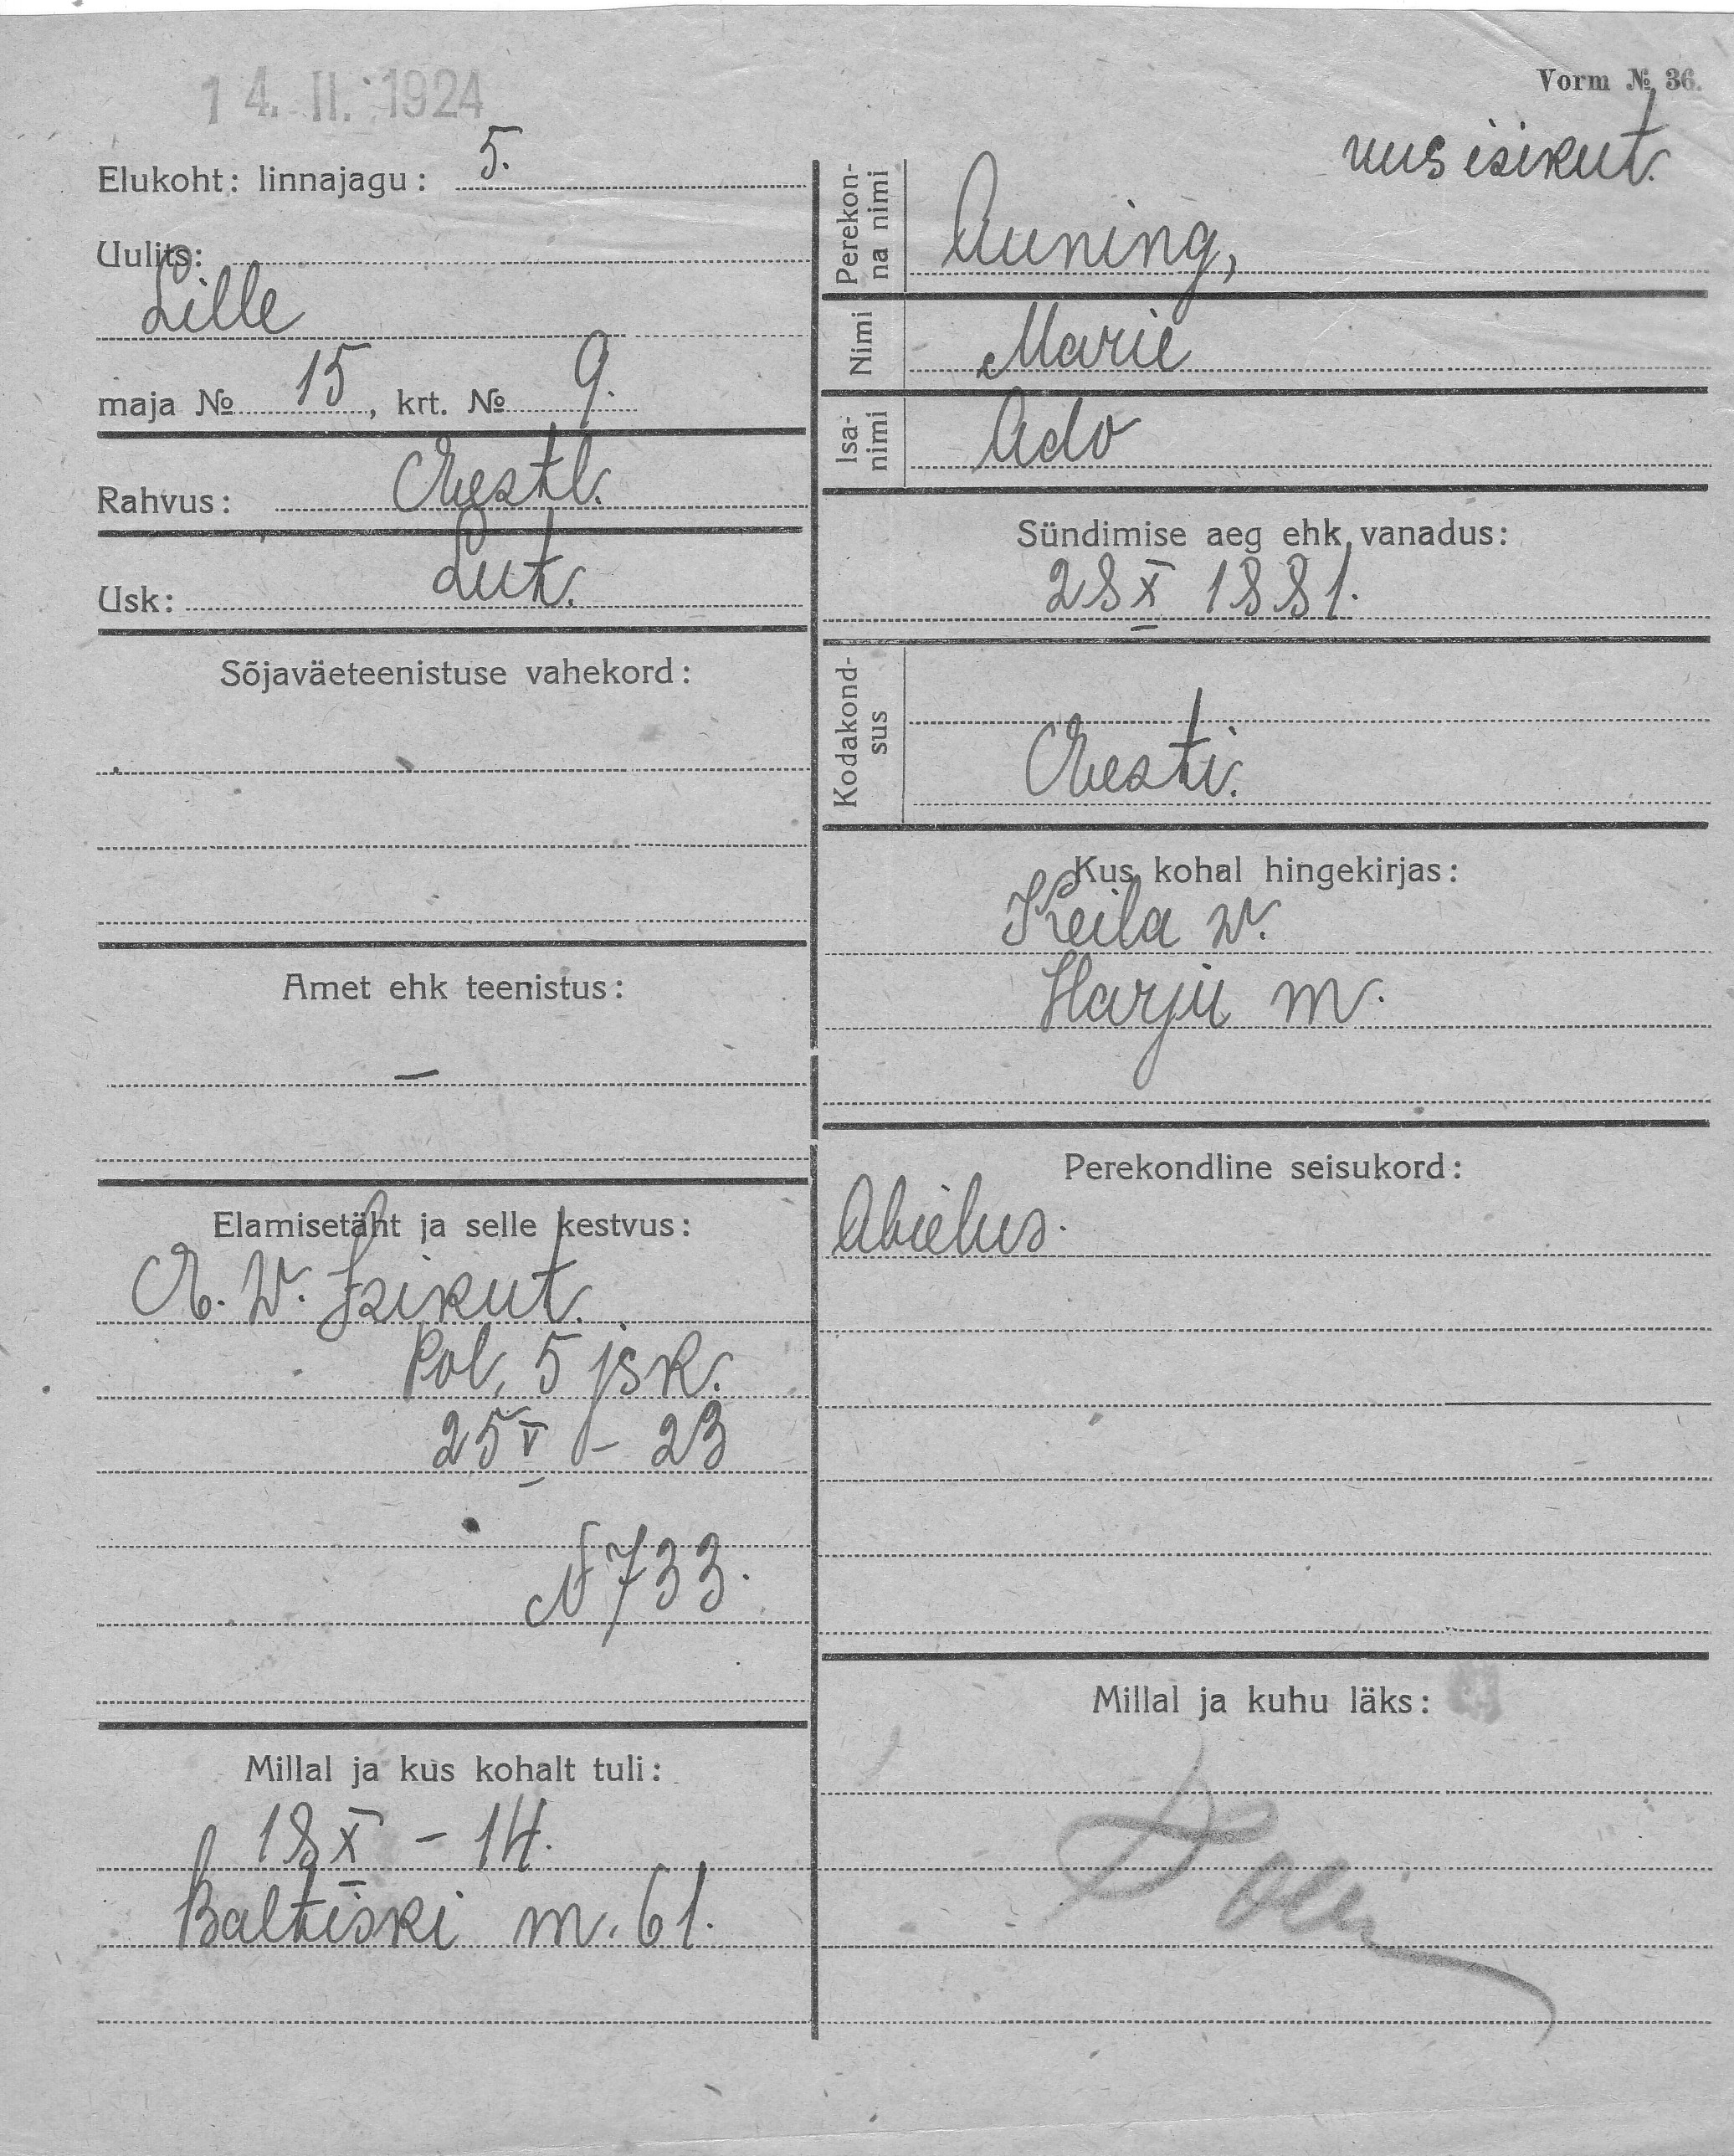 14. II. 1924
Vorm № 36.
uus isikut.
Elukoht: linnajagu: 5.
Uulits:
Lille
maja № 15, krt. № 9.
Rahvus: Eestl.
Usk: Lut.
Sõjaväeteenistuse vahekord:
Amet ehk teenistus:
—
Elamisetäht ja selle kestvus:
E. W. Isikut.
Pol. 5 jsk.
25 V – 23
N 733.
Millal ja kus kohalt tuli:
18 X – 14.
Baltiski m. 61.
Perekonna nimi Auning,
Nimi Marie
Isanimi Ado
Sündimise aeg ehk vanadus:
28 X 1881.
Kodakondsus
Eesti.
Kus kohal hingekirjas:
Keila w.
Harju m.
Perekondline seisukord:
Abielus.
Millal ja kuhu läks: